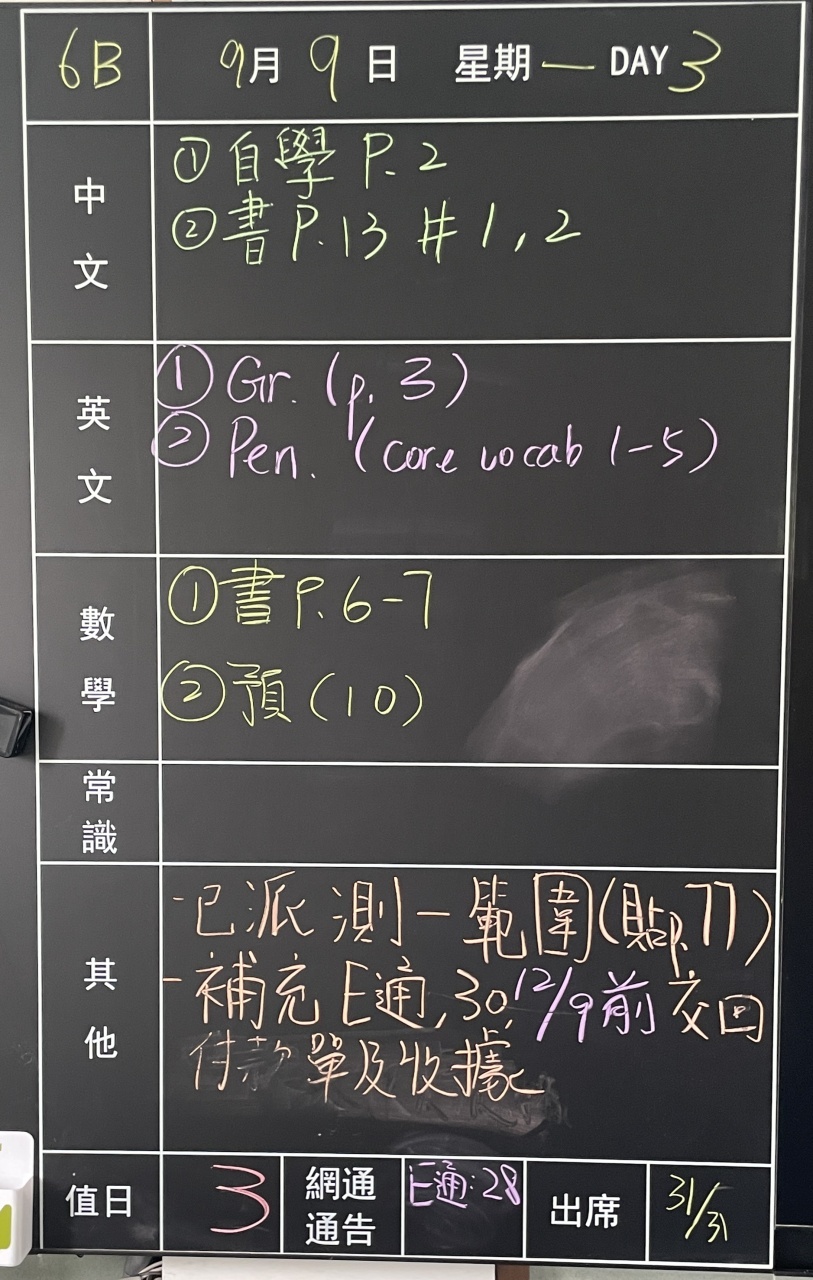 6B 9月9日 星期一 DAY 3
中文
①自學 P.2
②書P.13 #1,2
英文
① Gr. (p. 3)
② Pen. (core vocab 1-5)
數學
①書P.6-7
②預(10)
常識
其他
-已派測一範圍(貼p.77)
-補充E通,30, 12/9前交回
付款單及收據
值日 3 網通通告 E通:28 出席 31/31